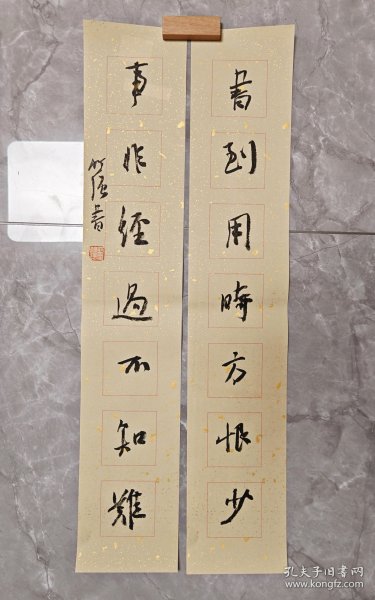 書到用時方恨少
事非經過不知難
書
孔夫子旧书网
www.kongfz.com